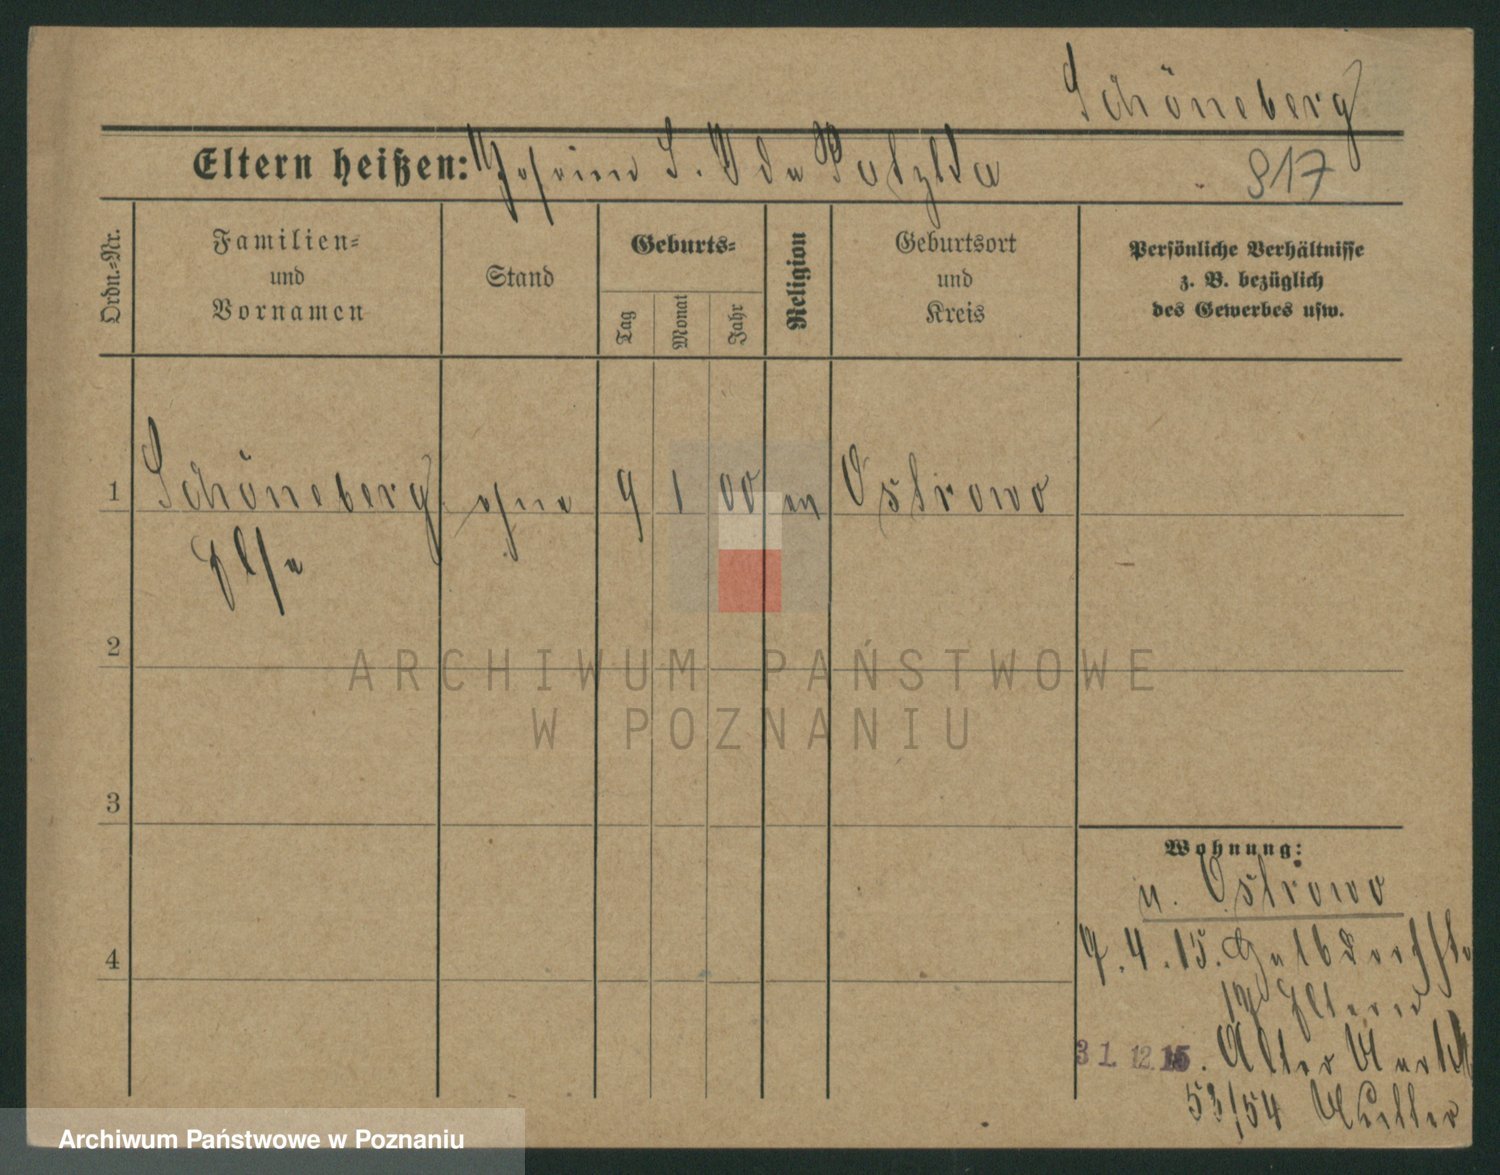 Schöneberg
Eltern heißen: Johann S. Ida Patzlda
917
Ordn.-Nr.
Familien-
und
Vornamen
Stand
Geburts-
Tag
Monat
Jahr
Religion
Geburtsort
und
Kreis
Persönliche Verhältnisse
z. B. bezüglich
des Gewerbes usw.
1
Schöneberg ohne 9 1 00 ev Ostrowo
Else
2
ARCHIWUM PAŃSTWOWE
W POZNANIU
3
Wohnung:
u. Ostrowo
4
9.4.15. Halbdorfstr
17 Eltern
31.12.15. Alter Markt
53/54 Mutter
Archiwum Państwowe w Poznaniu